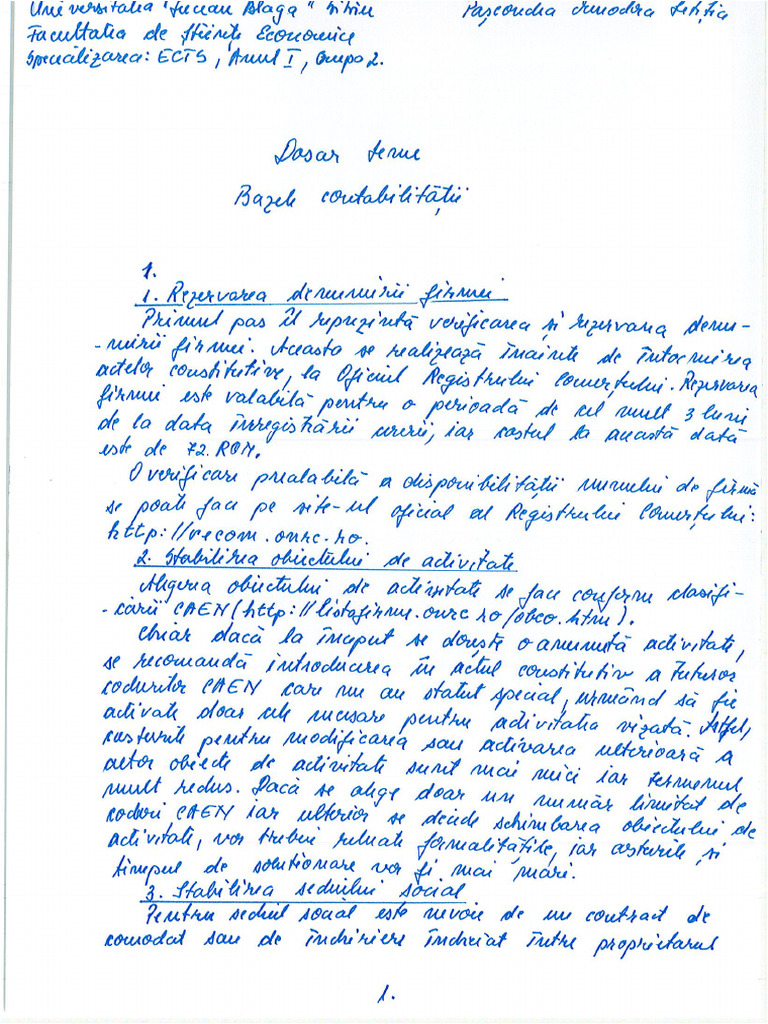 Universitatea "Lucian Blaga" Sibiu
Facultatea de Științe Economice
Specializarea: ECTS, Anul I, Grupa 2.
Dosar teme
Bazele contabilității
1.
1. Rezervarea denumirii firmei
Primul pas îl reprezintă verificarea și rezervarea denu-
-mirii firmei. Aceasta se realizează înainte de întocmirea
actelor constitutive, la Oficiul Registrului Comerțului. Rezervarea
firmei este valabilă pentru o perioadă de cel mult 3 luni
de la data înregistrării cererii, iar costul la această dată
este de 72. RON.
O verificare prealabilă a disponibilității numelui de firmă
se poate face pe site-ul oficial al Registrului Comerțului:
http://recom.onrc.ro.
2. Stabilirea obiectului de activitate
Alegerea obiectului de activitate se face conform clasifi-
-cării CAEN (http://listafirme.onrc.ro/obco.htm).
Chiar dacă la început se dorește o anumită activitate,
se recomandă introducerea în actul constitutiv a tuturor
codurilor CAEN care nu au statut special, urmând să fie
activate doar cele necesare pentru activitatea vizată. Astfel,
costurile pentru modificarea sau activarea ulterioară a
altor obiecte de activitate sunt mai mici iar termenul
mult redus. Dacă se alege doar un număr limitat de
coduri CAEN iar ulterior se decide schimbarea obiectului de
activitate, vor trebui reluate formalitățile, iar costurile și
timpul de soluționare vor fi mai mari.
3. Stabilirea sediului social
Pentru sediul social este nevoie de un contract de
comodat sau de închiriere încheiat între proprietarul
1.